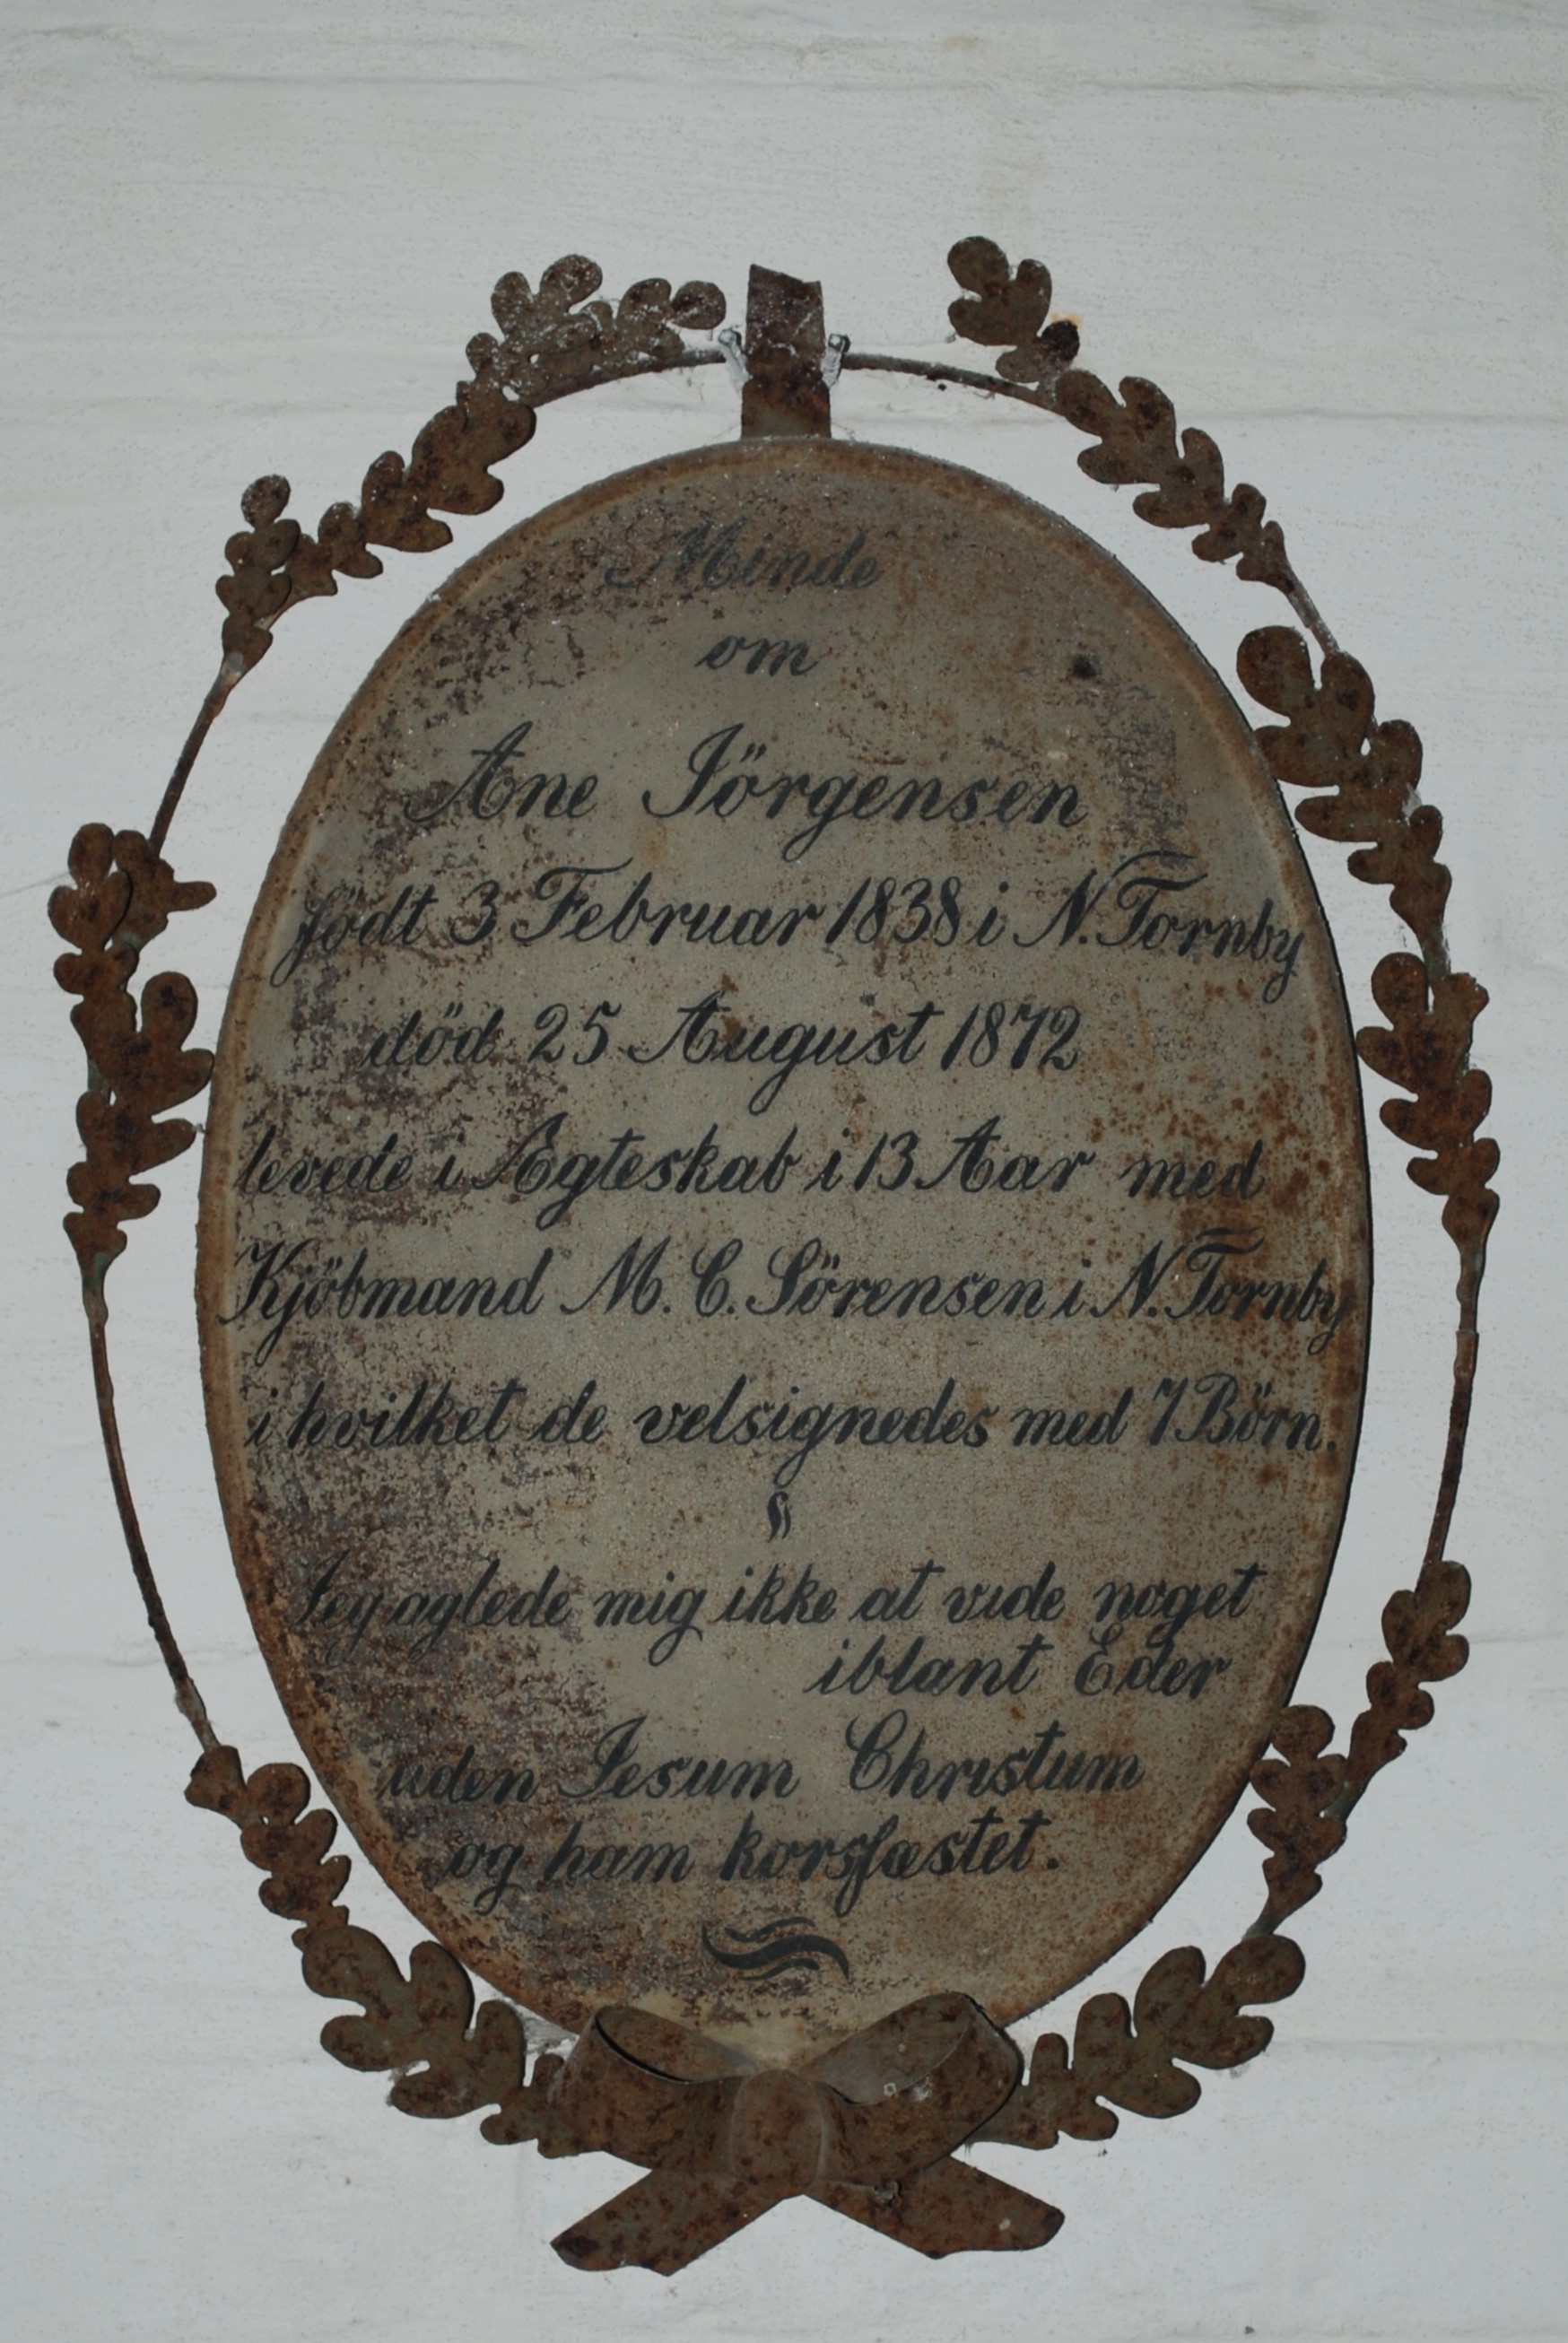 Minde
om
Ane Jörgensen
födt 3 Februar 1838 i N. Tornby
död 25 August 1872
levede i Ægteskab i 13 Aar med
Kjöbmand M. C. Sörensen i N. Tornby
i hvilket de velsignedes med 7 Börn.
Jeg aglede mig ikke at vide noget
iblant Eder
uden Jesum Christum
og ham korsfæstet.